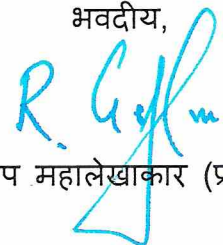 भवदीय,
प महालेखाकार (प्र